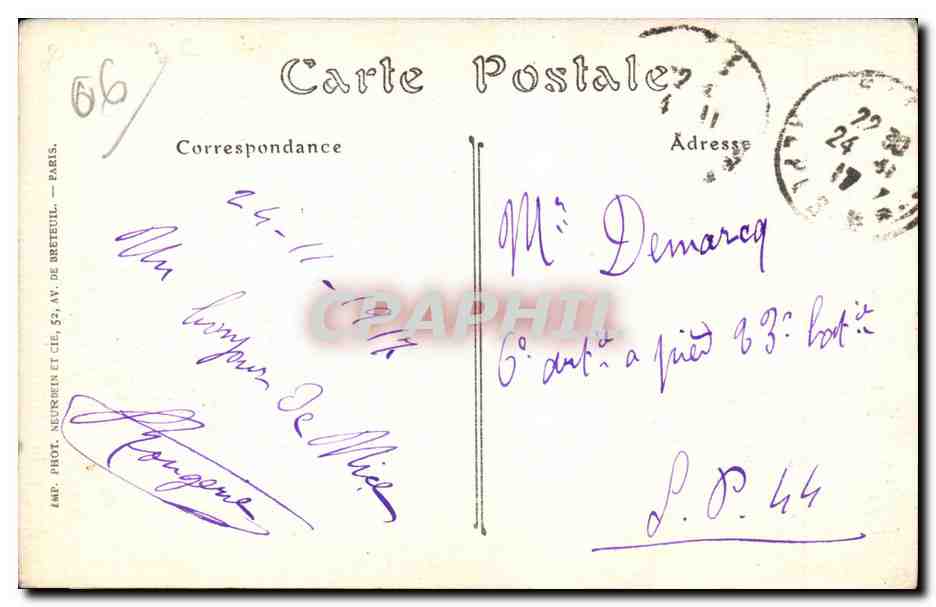 06
Carte Postale
Correspondance
Adresse
24-11-1917
Un bonjour de Nice
Mr Demarcq
6e artie a pied 23e batie
S. P. 44
22 30
24
11
17
CPAPHIL
IMP. PHOT. NEURDEIN ET CIE, 52, AV. DE BRETEUIL. — PARIS.